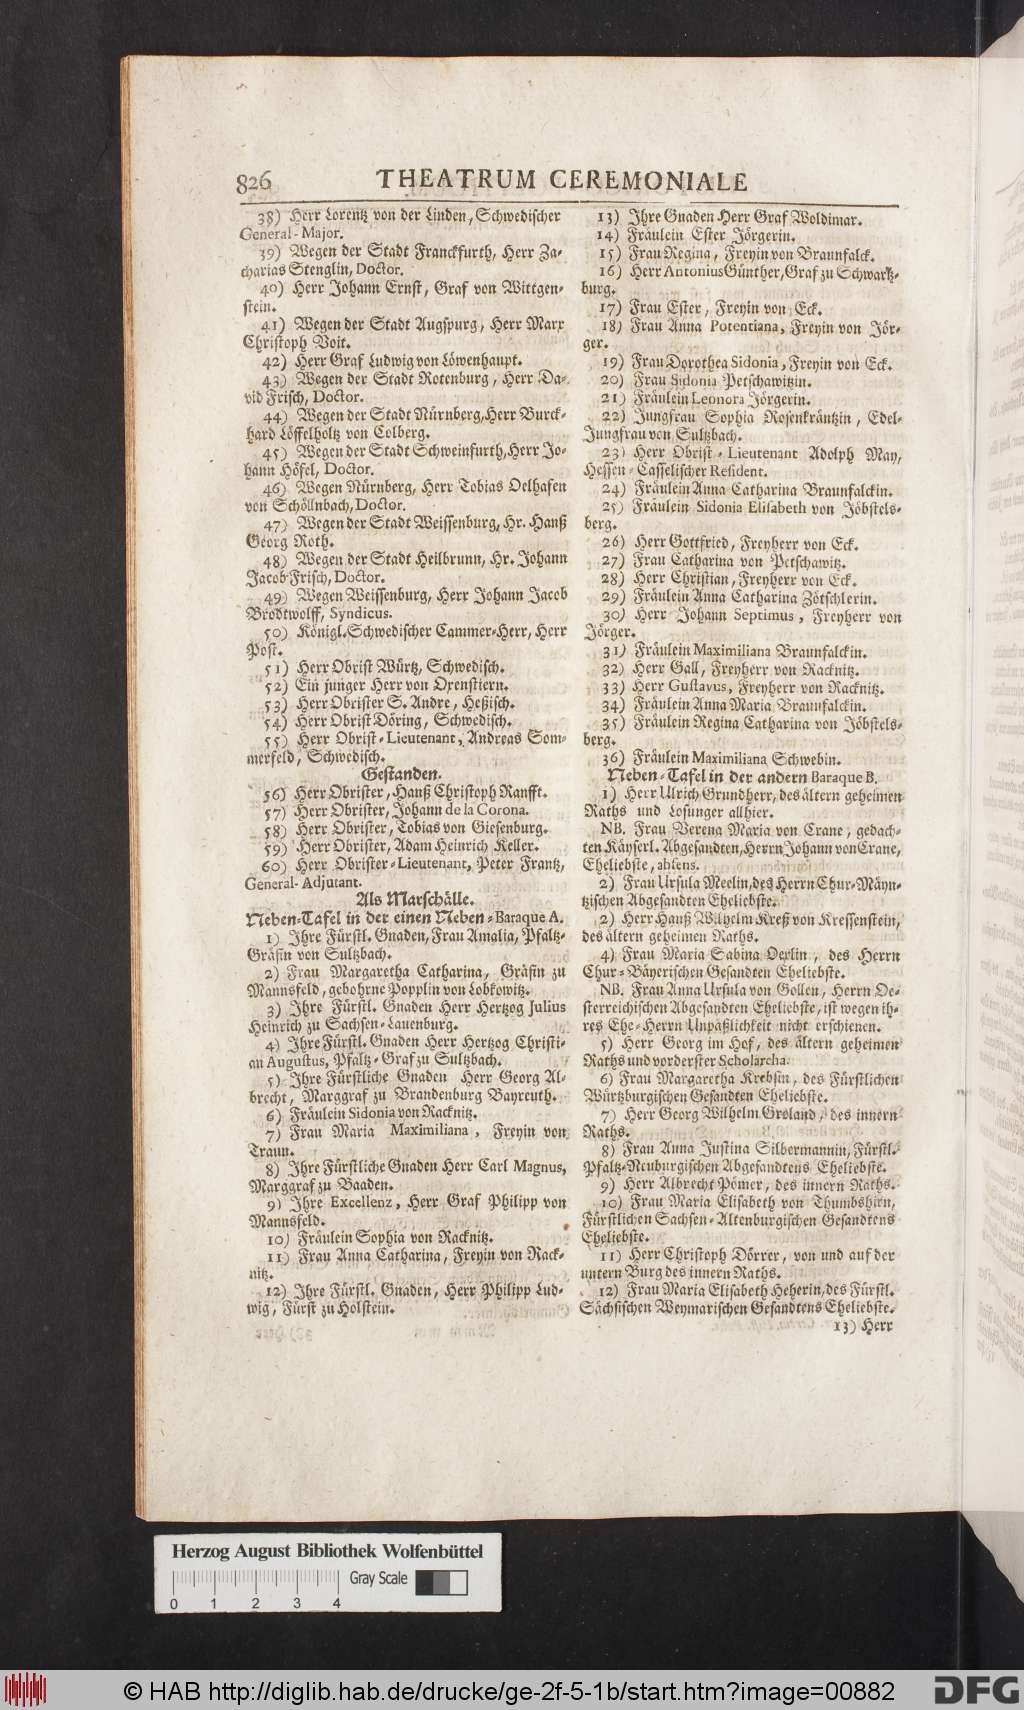 826 THEATRUM CEREMONIALE
38) Herr Lorentz von der Linden, Schwedischer
General-Major.
39) Wegen der Stadt Franckfurth, Herr Za-
charias Stenglin, Doctor.
40) Herr Johann Ernst, Graf von Wittgen-
stein.
41) Wegen der Stadt Augspurg, Herr Marx
Christoph Voit.
42) Herr Graf Ludwig von Löwenhaupt.
43) Wegen der Stadt Rotenburg, Herr Da-
vid Frisch, Doctor.
44) Wegen der Stadt Nürnberg, Herr Burck-
hard Löffelholtz von Colberg.
45) Wegen der Stadt Schweinfurth, Herr Jo-
hann Höfel, Doctor.
46) Wegen Nürnberg, Herr Tobias Oelhafen
von Schöllnbach, Doctor.
47) Wegen der Stadt Weissenburg, Hr. Hanß
Georg Roth.
48) Wegen der Stadt Heilbrunn, Hr. Johann
Jacob Frisch, Doctor.
49) Wegen Weissenburg, Herr Johann Jacob
Brodtwolff, Syndicus.
50) Königl. Schwedischer Cammer-Herr, Herr
Post.
51) Herr Obrist Würtz, Schwedisch.
52) Ein junger Herr von Oxenstiern.
53) Herr Obrister S. Andre, Heßisch.
54) Herr Obrist Döring, Schwedisch.
55) Herr Obrist-Lieutenant, Andreas Som-
merfeld, Schwedisch.
Gestanden.
56) Herr Obrister, Hanß Christoph Ranfft.
57) Herr Obrister, Johann de la Corona.
58) Herr Obrister, Tobias von Giesenburg.
59) Herr Obrister, Adam Heinrich Keller.
60) Herr Obrister-Lieutenant, Peter Frantz,
General-Adjutant.
Als Marschälle.
Neben-Tafel in der einen Neben-Baraque A.
1) Ihre Fürstl. Gnaden, Frau Amalia, Pfaltz-
Gräfin von Sultzbach.
2) Frau Margaretha Catharina, Gräfin zu
Mannsfeld, gebohrne Popplin von Lobkowitz.
3) Ihre Fürstl. Gnaden Herr Hertzog Julius
Heinrich zu Sachsen-Lauenburg.
4) Ihre Fürstl. Gnaden Herr Hertzog Christi-
an Augustus, Pfaltz-Graf zu Sultzbach.
5) Ihre Fürstliche Gnaden Herr Georg Al-
brecht, Marggraf zu Brandenburg Bayreuth.
6) Fräulein Sidonia von Racknitz.
7) Frau Maria Maximiliana, Freyin von
Traun.
8) Ihre Fürstliche Gnaden Herr Carl Magnus,
Marggraf zu Baaden.
9) Ihre Excellenz, Herr Graf Philipp von
Mannsfeld.
10) Fräulein Sophia von Racknitz.
11) Frau Anna Catharina, Freyin von Rack-
nitz.
12) Ihre Fürstl. Gnaden, Herr Philipp Lud-
wig, Fürst zu Holstein.
13) Ihre Gnaden Herr Graf Woldimar.
14) Fräulein Ester Jörgerin.
15) Frau Regina, Freyin von Braunfalck.
16) Herr Antonius Günther, Graf zu Schwartz-
burg.
17) Frau Ester, Freyin von Eck.
18) Frau Anna Potentiana, Freyin von Jör-
ger.
19) Frau Dorothea Sidonia, Freyin von Eck.
20) Frau Sidonia Petschawitzin.
21) Fräulein Leonora Jörgerin.
22) Jungfrau Sophia Rosenkräntzin, Edel-
Jungfrau von Sultzbach.
23) Herr Obrist-Lieutenant Adolph May,
Hessen-Casselischer Resident.
24) Fräulein Anna Catharina Braunfalckin.
25) Fräulein Sidonia Elisabeth von Jöbstels-
berg.
26) Herr Gottfried, Freyherr von Eck.
27) Frau Catharina von Petschawitz.
28) Herr Christian, Freyherr von Eck.
29) Fräulein Anna Catharina Zötschlerin.
30) Herr Johann Septimus, Freyherr von
Jörger.
31) Fräulein Maximiliana Braunfalckin.
32) Herr Gall, Freyherr von Racknitz.
33) Herr Gustavus, Freyherr von Racknitz.
34) Fräulein Anna Maria Braunfalckin.
35) Fräulein Regina Catharina von Jöbstels-
berg.
36) Fräulein Maximiliana Schwebin.
Neben-Tafel in der andern Baraque B.
1) Herr Ulrich Grundherr, des ältern geheimen
Raths und Losunger allhier.
NB. Frau Verena Maria von Crane, gedach-
ten Käyserl. Abgesandten, Herrn Johann von Crane,
Eheliebste, absens.
2) Frau Ursula Meelin, des Herrn Chur-Mäyn-
tzischen Abgesandten Eheliebste.
2) Herr Hanß Wilhelm Kreß von Kressenstein,
des ältern geheimen Raths.
4) Frau Maria Sabina Oexlin, des Herrn
Chur-Bäyerischen Gesandten Eheliebste.
NB. Frau Anna Ursula von Gollen, Herrn Oe-
sterreichischen Abgesandten Eheliebste, ist wegen ih-
res Ehe-Herrn Unpäßlichkeit nicht erschienen.
5) Herr Georg im Hof, des ältern geheimen
Raths und vorderster Scholarcha.
6) Frau Margaretha Krebsin, des Fürstlichen
Würtzburgischen Gesandten Eheliebste.
7) Herr Georg Wilhelm Groland, des innern
Raths.
8) Frau Anna Justina Silbermannin, Fürstl.
Pfaltz-Neuburgischen Abgesandtens Eheliebste.
9) Herr Albrecht Pömer, des innern Raths.
10) Frau Maria Elisabeth von Thumbshirn,
Fürstlichen Sachsen-Altenburgischen Gesandtens
Eheliebste.
11) Herr Christoph Dörrer, von und auf der
untern Burg des innern Raths.
12) Frau Maria Elisabeth Heherin, des Fürstl.
Sächsischen Weymarischen Gesandtens Eheliebste.
13) Herr
Herzog August Bibliothek Wolfenbüttel
Gray Scale
0 1 2 3 4
© HAB http://diglib.hab.de/drucke/ge-2f-5-1b/start.htm?image=00882
DFG